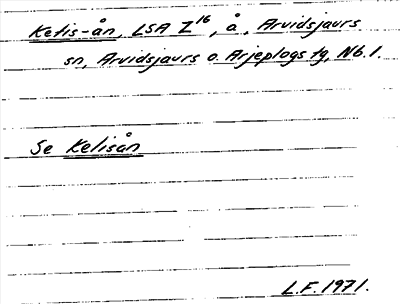 Ketis-ån, LSA Z¹⁶, å, Arvidsjaurs
sn, Arvidsjaurs o. Arjeplogs tg, Nb. l.
Se Kelisån
L.F. 1971.